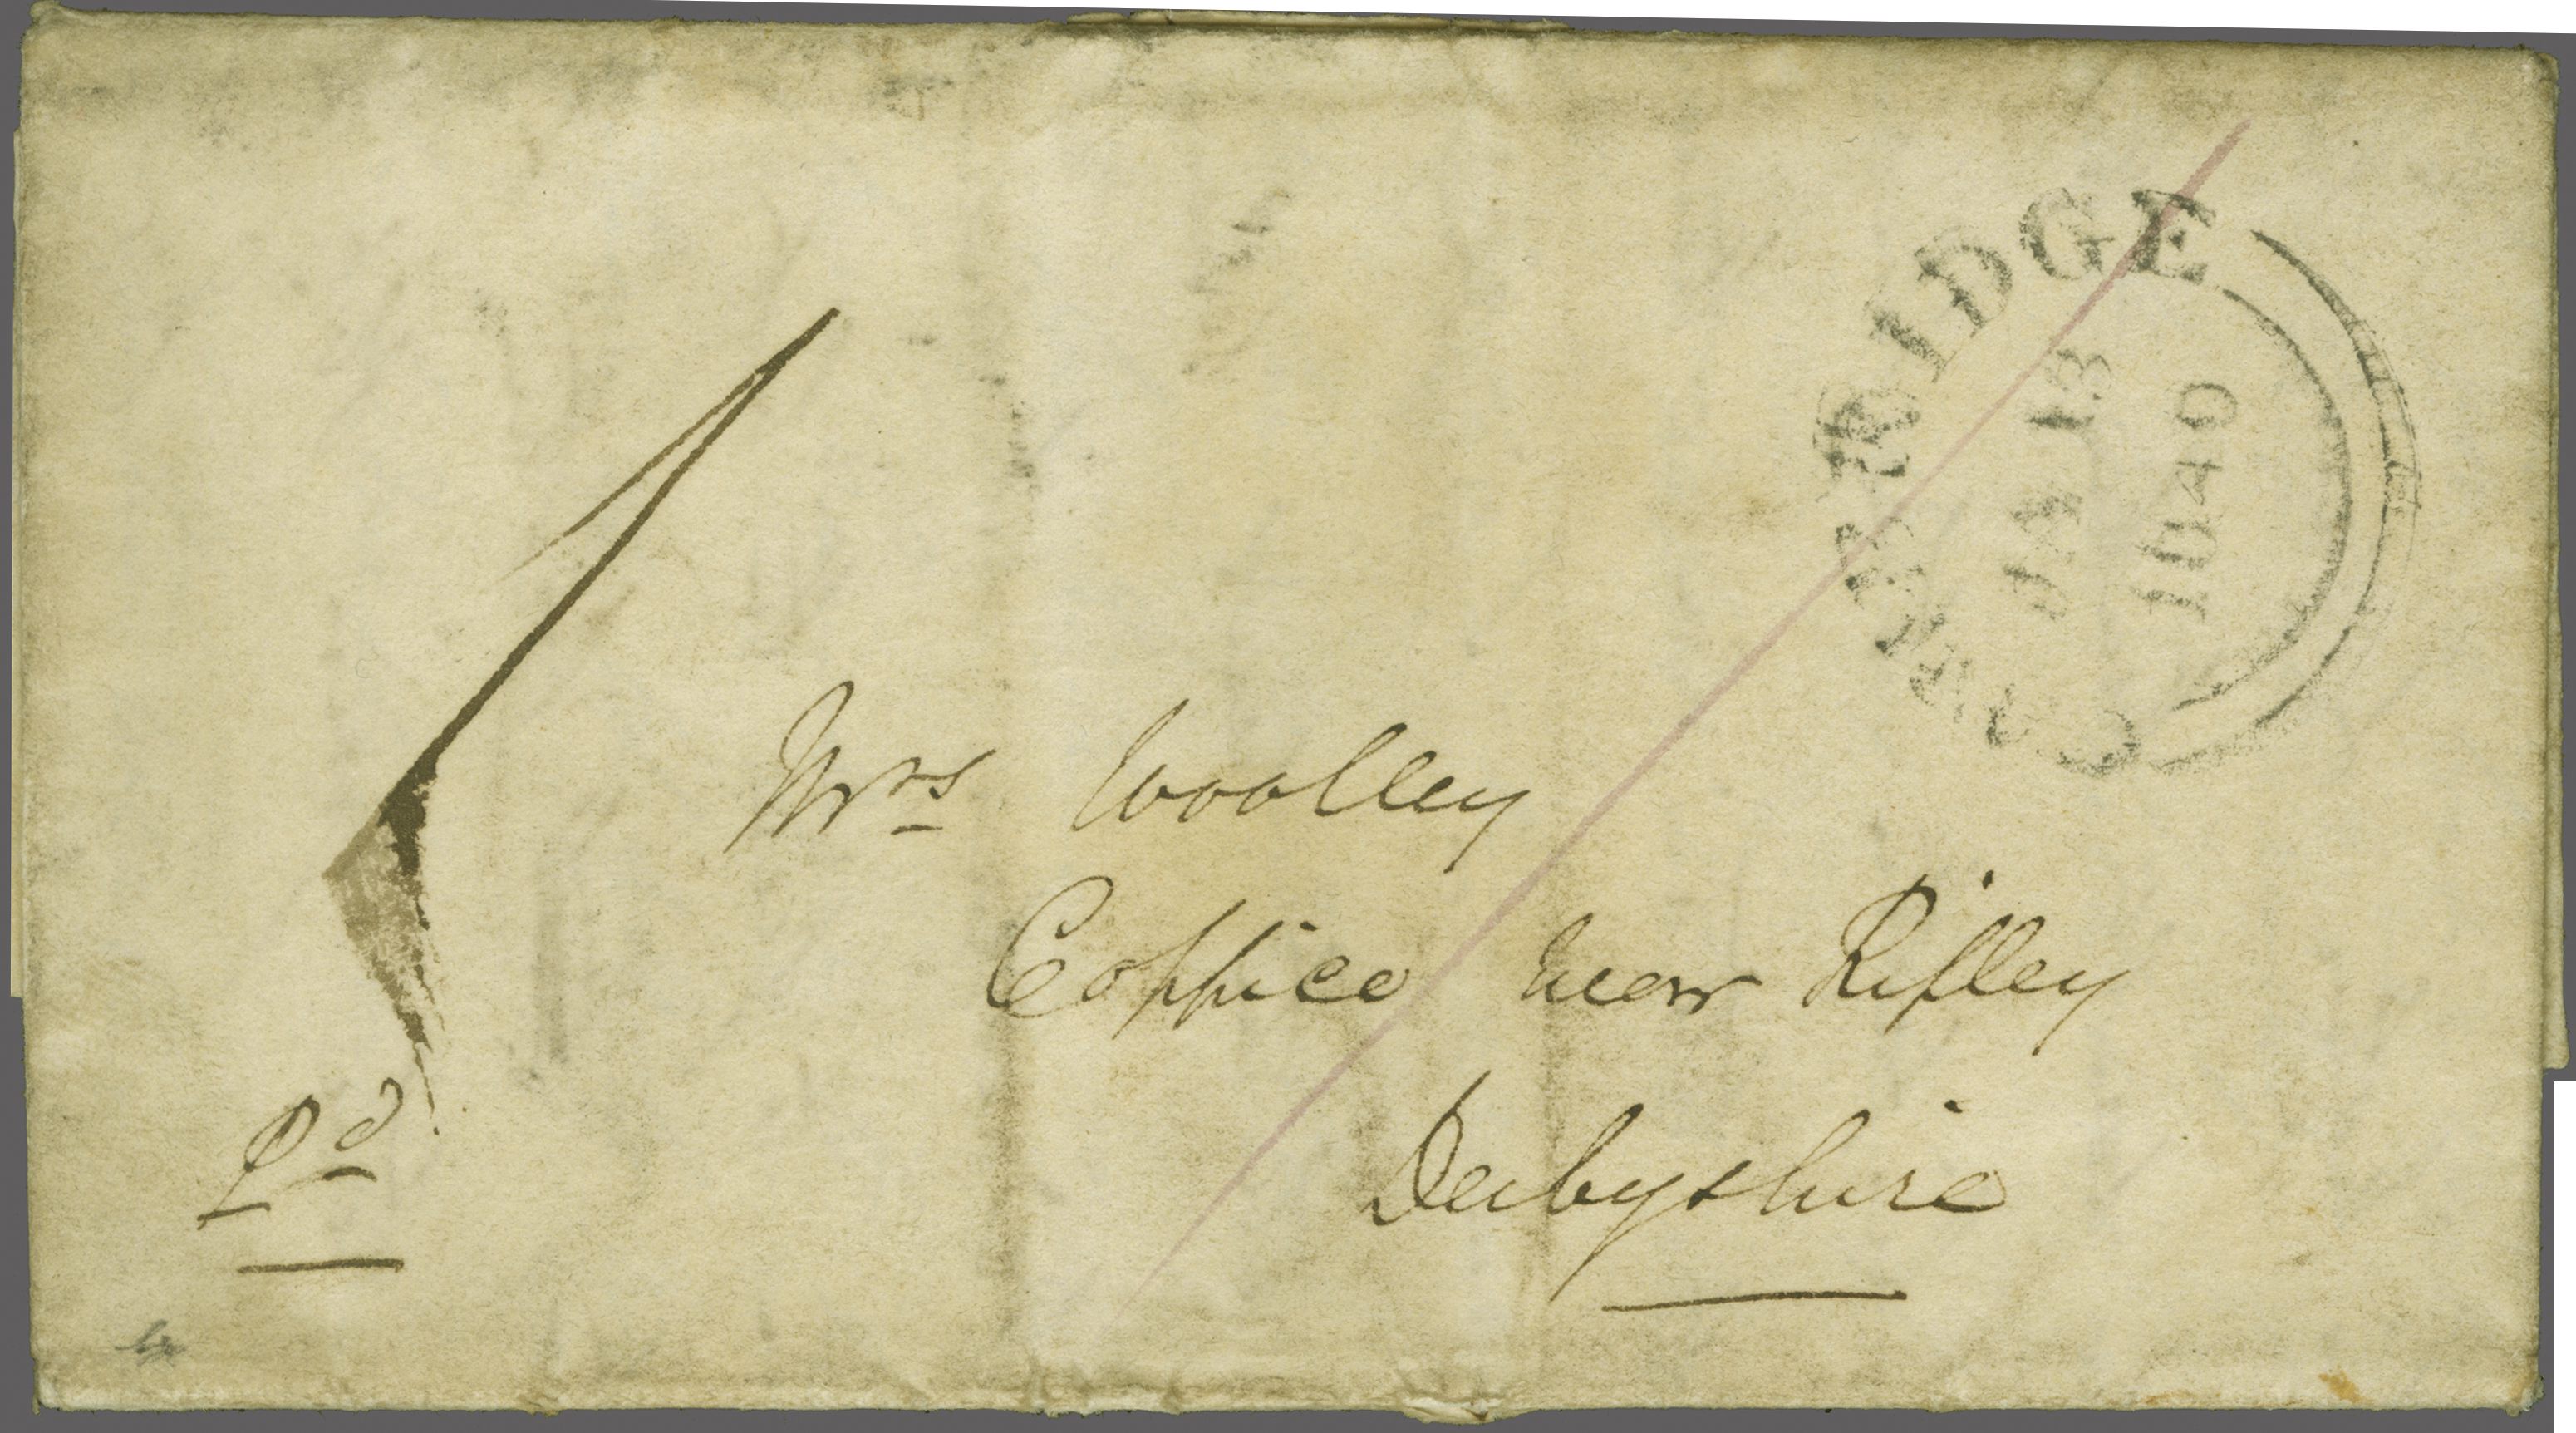 CAMBRIDGE
JA 13
1840
1
Mrs Woolley
Coppice near Ripley
Derbyshire
Pd